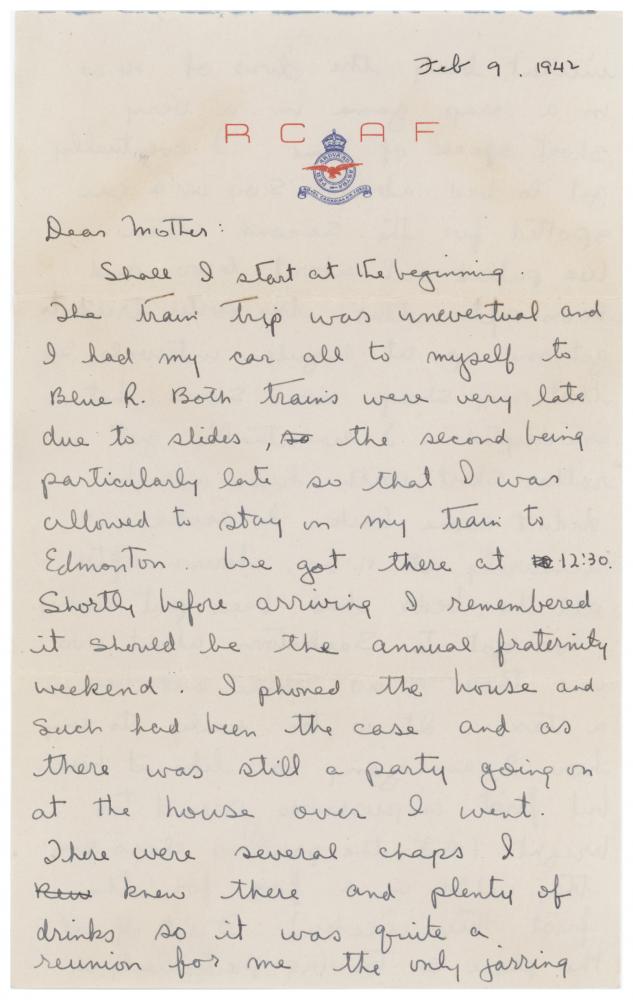 Feb 9. 1942
R C A F
PER ARDUA AD ASTRA
ROYAL CANADIAN AIR FORCE
Dear Mother:
Shall I start at the beginning.
The train trip was uneventual and
I had my car all to myself to
Blue R. Both trains were very late
due to slides, so the second being
particularly late so that I was
allowed to stay on my train to
Edmonton. We got there at 12:30.
Shortly before arriving I remembered
it should be the annual fraternity
weekend. I phoned the house and
such had been the case and as
there was still a party going on
at the house over I went.
There were several chaps I
knew there and plenty of
drinks so it was quite a
reunion for me the only jarring